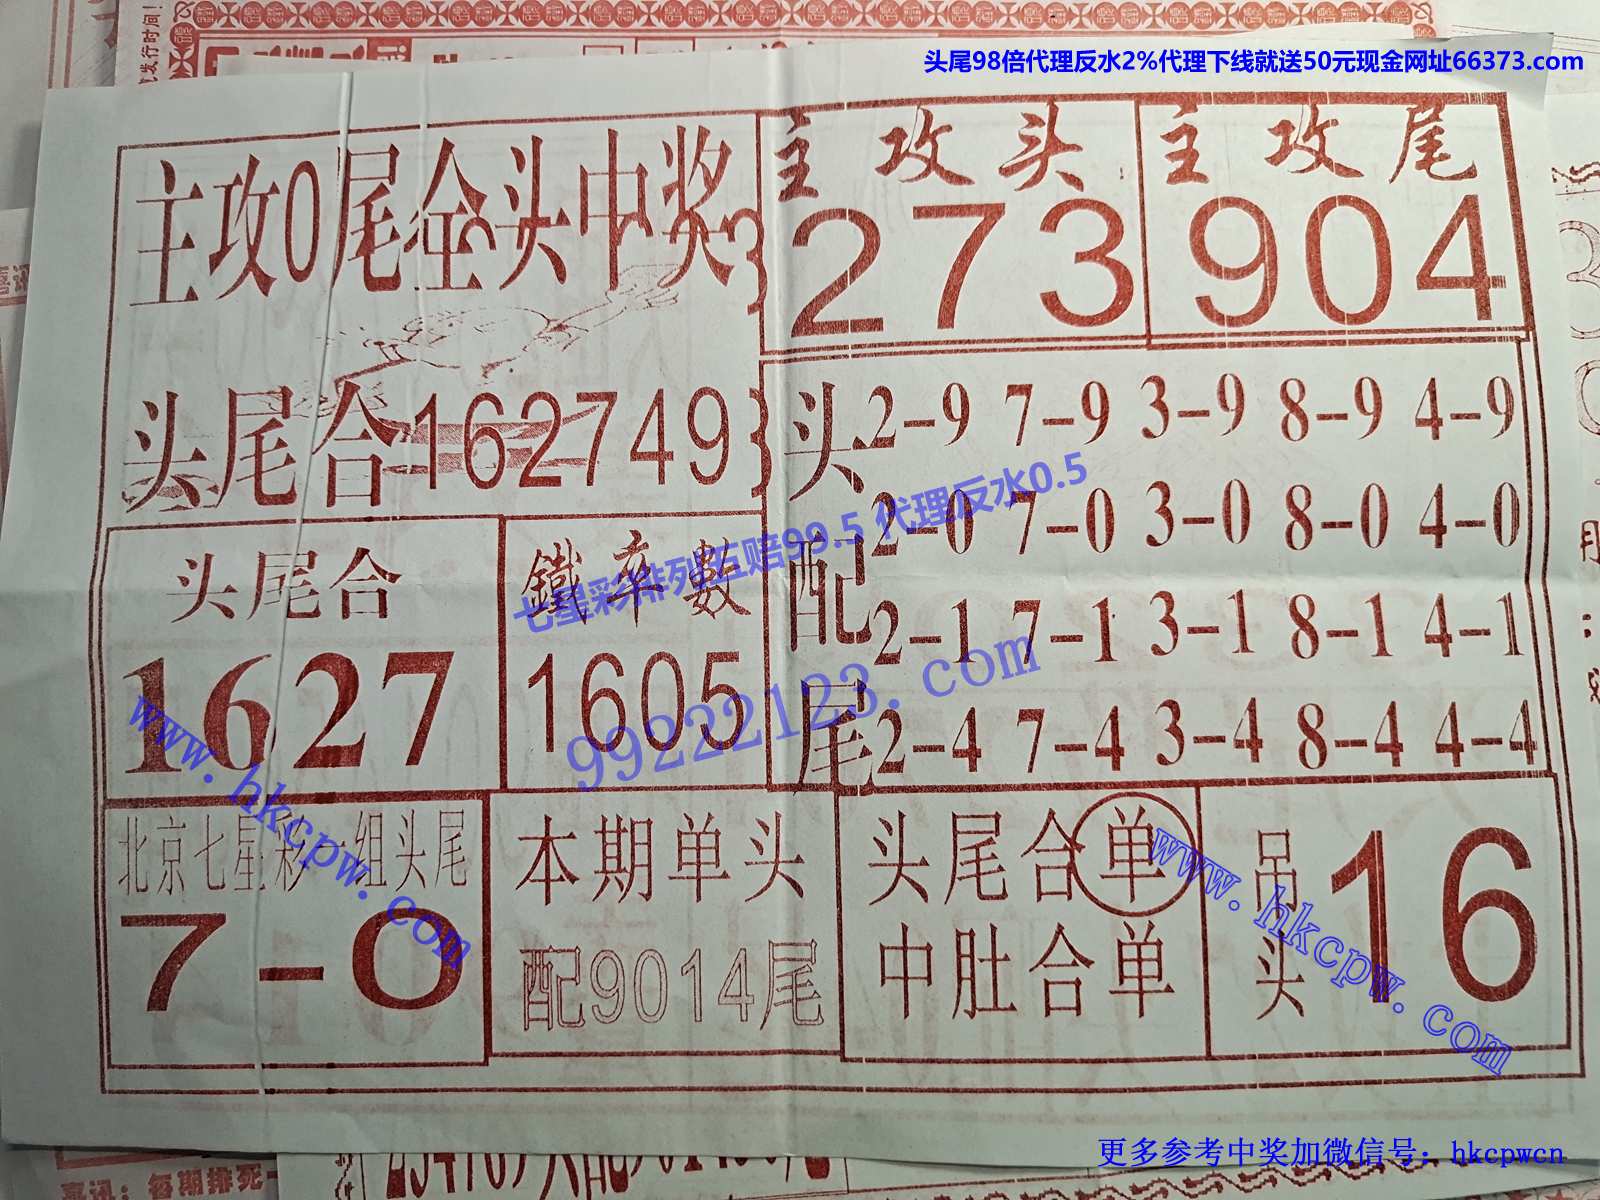 发行时间!
头尾98倍代理反水2%代理下线就送50元现金网址66373.com
主攻0尾全头中奖
主攻头
273
主攻尾
904
头尾合162749
头配尾
2-9 7-9 3-9 8-9 4-9
2-0 7-0 3-0 8-0 4-0
2-1 7-1 3-1 8-1 4-1
2-4 7-4 3-4 8-4 4-4
头尾合
1627
鐵率數
1605
七星彩排列五赔99.5 代理反水0.5
99222123.com
www.hkcpw.com
北京七星彩一组头尾
7-0
本期单头
配9014尾
头尾合单
中肚合单
吊头
16
www.hkcpw.com
更多参考中奖加微信号：hkcpwcn
喜讯：每期排死